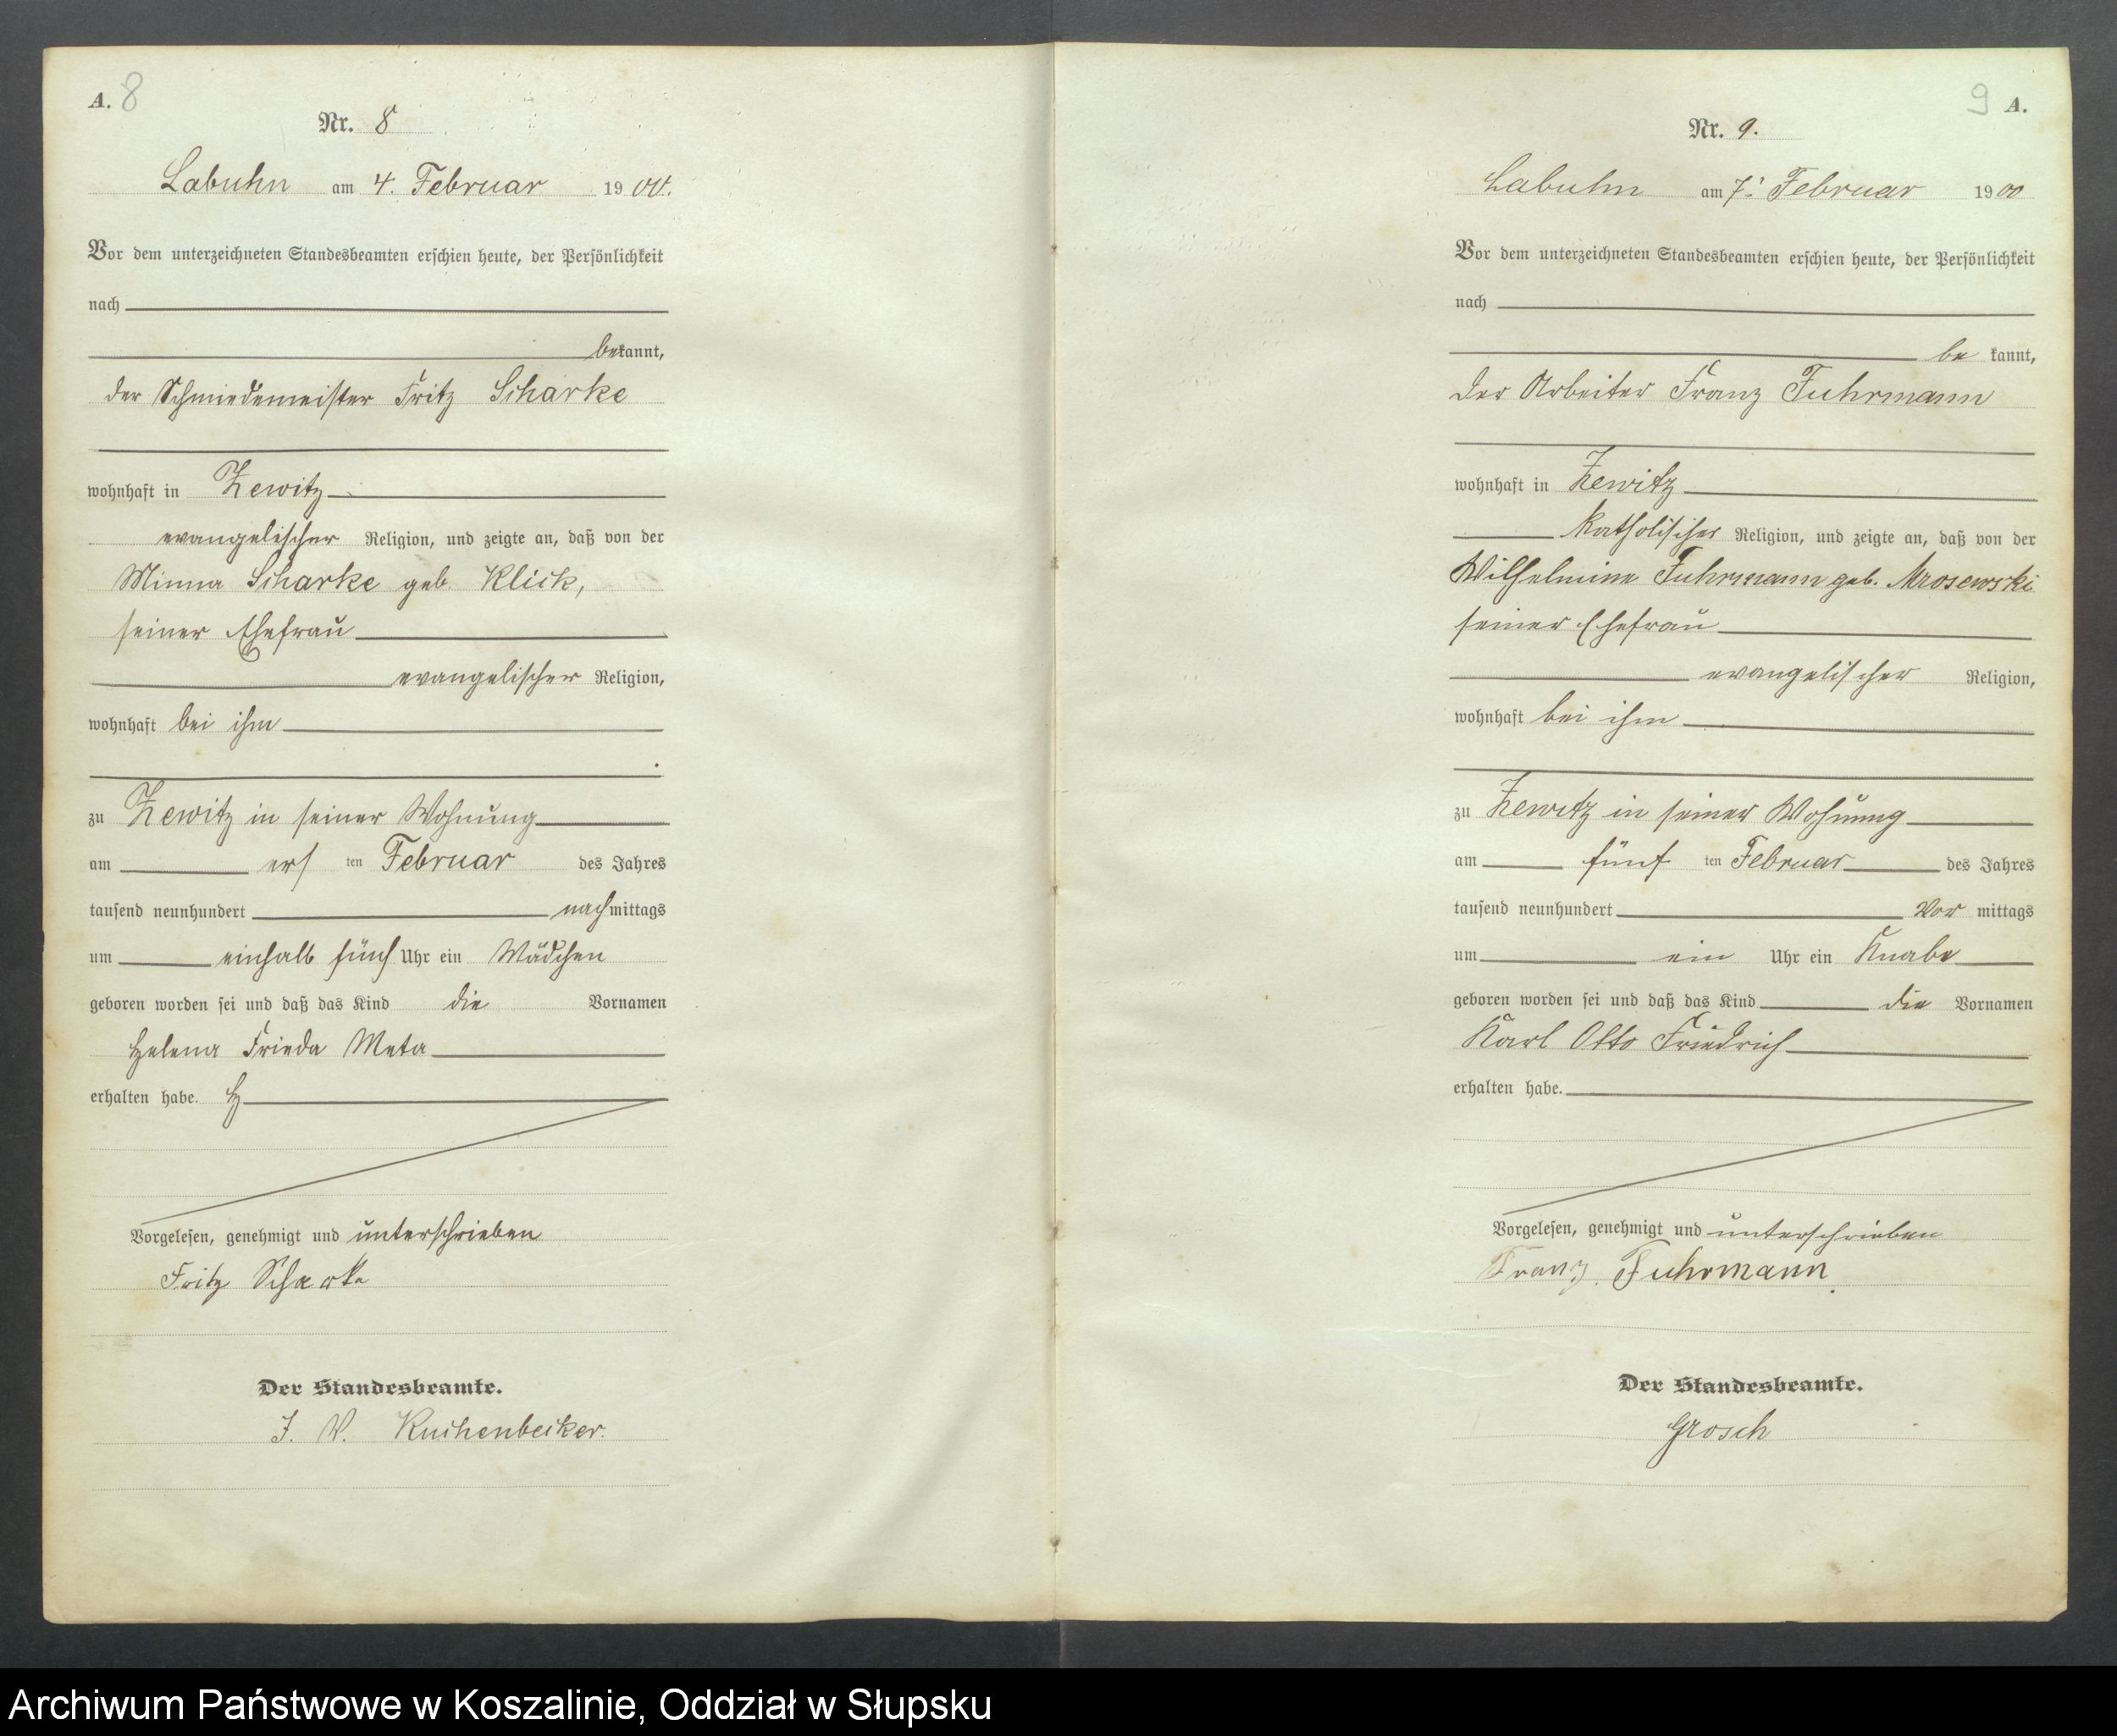 A. 8
Nr. 8
Labuhn am 4. Februar 1900.
Vor dem unterzeichneten Standesbeamten erschien heute, der Persönlichkeit
nach
bekannt,
der Schmiedemeister Fritz Scharke
wohnhaft in Zewitz
evangelischer Religion, und zeigte an, daß von der
Minna Scharke geb. Klick,
seiner Ehefrau
evangelischer Religion,
wohnhaft bei ihm
zu Zewitz in seiner Wohnung
am ersten Februar des Jahres
tausend neunhundert nachmittags
um einhalb fünf Uhr ein Mädchen
geboren worden sei und daß das Kind die Vornamen
Helena Frieda Meta
erhalten habe.
Vorgelesen, genehmigt und unterschrieben
Fritz Scharke
Der Standesbeamte.
J. V. Kuchenbecker.
9 A.
Nr. 9.
Labuhn am 7. Februar 1900
Vor dem unterzeichneten Standesbeamten erschien heute, der Persönlichkeit
nach
bekannt,
der Arbeiter Franz Fuhrmann
wohnhaft in Zewitz
katholischer Religion, und zeigte an, daß von der
Wilhelmine Fuhrmann geb. Mrosewski
seiner Ehefrau
evangelischer Religion,
wohnhaft bei ihm
zu Zewitz in seiner Wohnung
am fünften Februar des Jahres
tausend neunhundert Vormittags
um ein Uhr ein Knabe
geboren worden sei und daß das Kind die Vornamen
Karl Otto Friedrich
erhalten habe.
Vorgelesen, genehmigt und unterschrieben
Franz Fuhrmann
Der Standesbeamte.
Grosch
Archiwum Państwowe w Koszalinie, Oddział w Słupsku